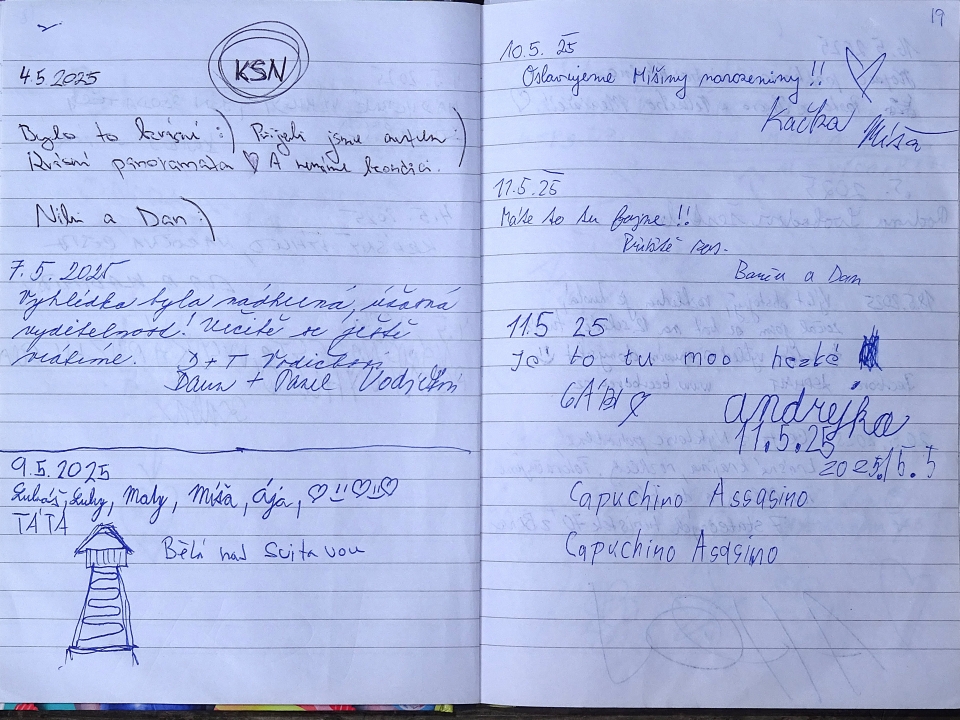 KSN
4.5.2025
Bylo to krásní :) Přijeli jsme autem :)
Krásní panoramata A nemíme kondici.
a Dan :)
7. 5. 2025
Vyhlídka byla nádherná, úžasná
viditelnost! Určitě se ještě
vrátíme. D + T Vodičkovi
Dana + Pavel Vodičkovi
9.5.2025
Lukáš, Luky, Maty, Míša, Ája,
TÁTA
Bělá nad Svitavou
19
10.5. 25
Oslavujeme Míšiny narozeniny !!
Kačka Míša
11.5.25
Máte to tu fajne !!
Příště zas.
a Dan
11.5 25
Je to tu moc hezké
GÁBI
andrejka
11.5.25
2025.15.5
Capuchino Assasino
Capuchino Asasino